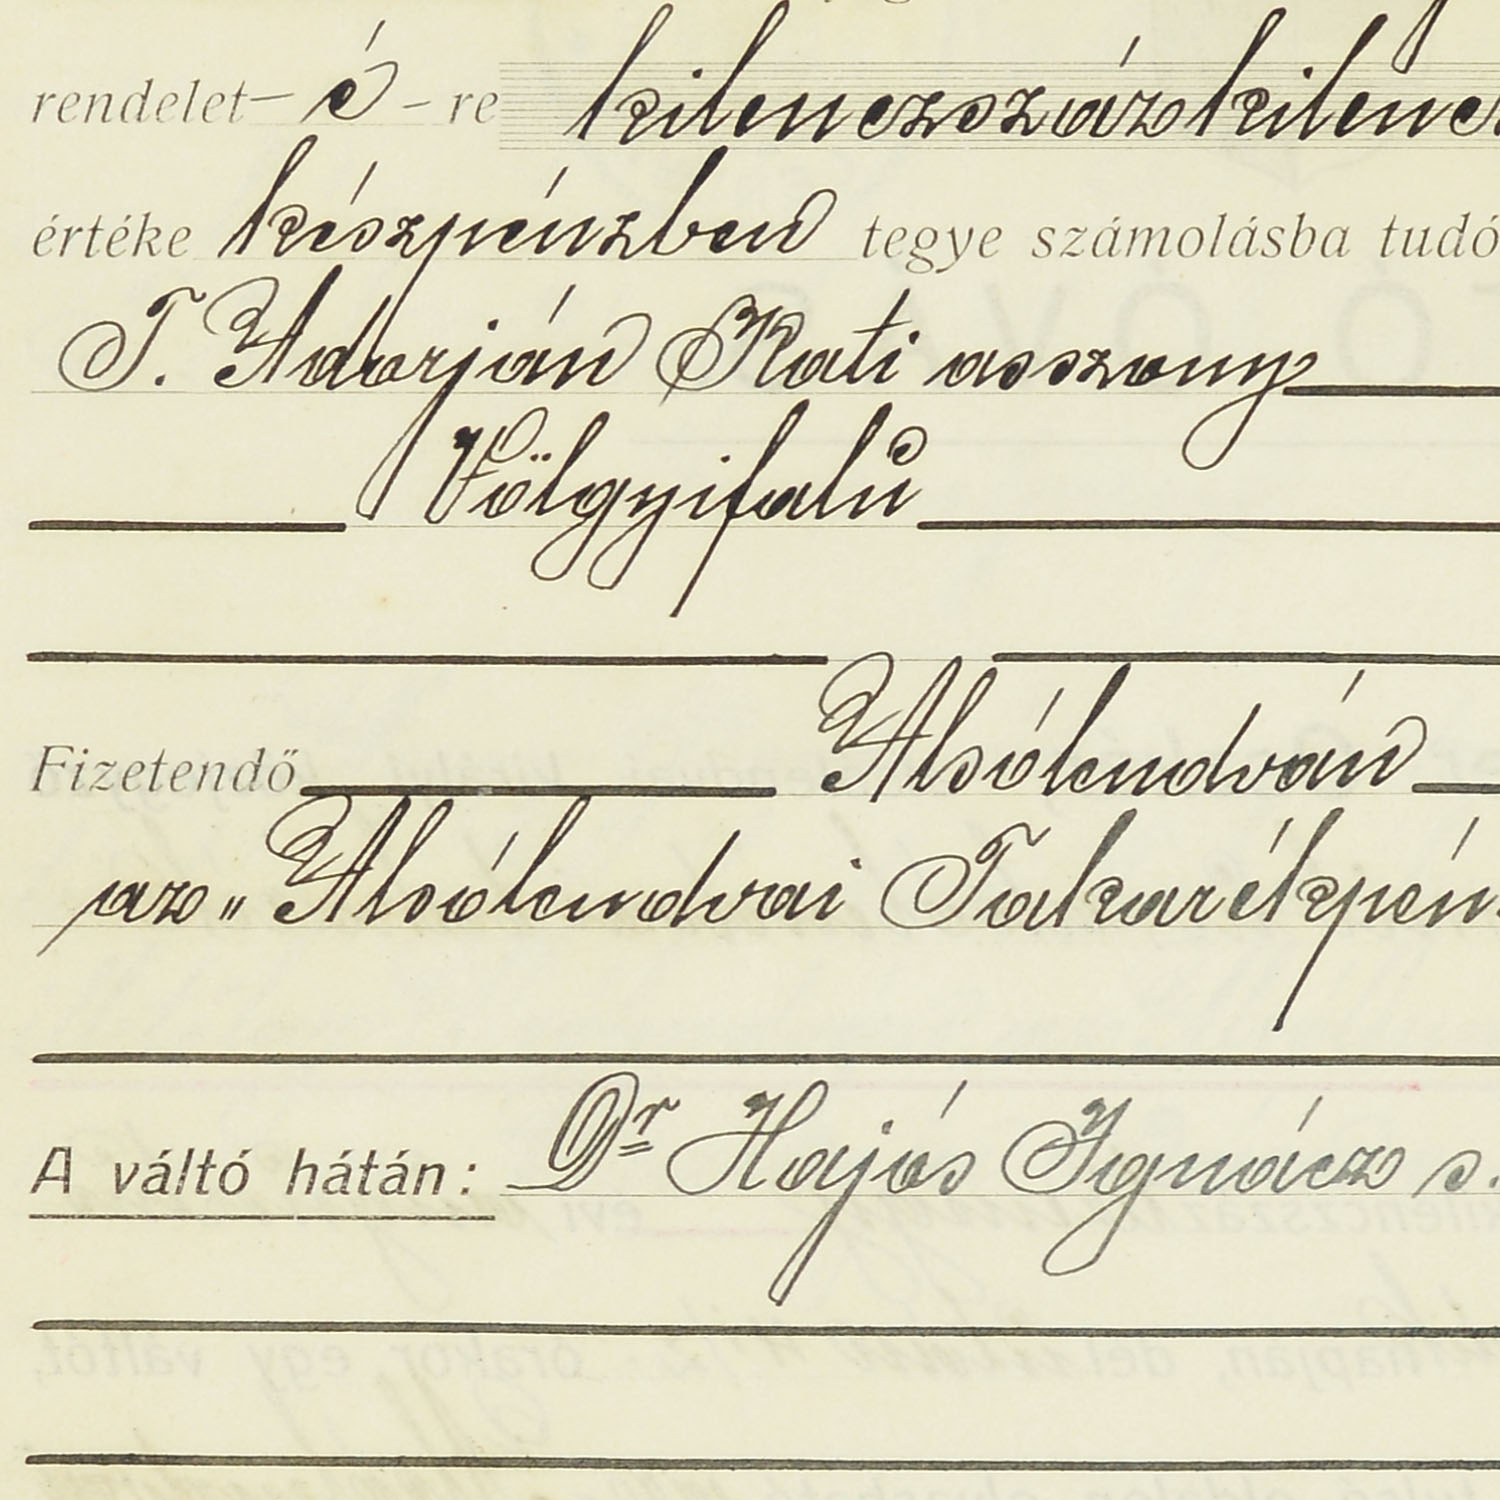 rendelet— é - re kilenczszázkilencz
értéke készpénzben tegye számolásba tudó
T. Adorján Kati asszony
Völgyifalu
Fizetendő Alsólendván
az „Alsólendvai Takarékpén
A váltó hátán: Dr Hajós Ignácz s.